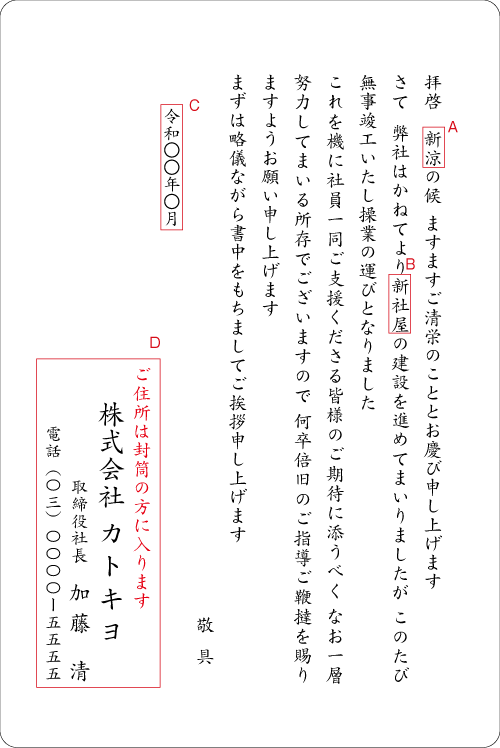 拝啓 新涼の候 ますますご清栄のこととお慶び申し上げます
A
さて 弊社はかねてより新社屋の建設を進めてまいりましたが このたび
B
無事竣工いたし操業の運びとなりました
これを機に社員一同ご支援くださる皆様のご期待に添うべく なお一層
努力してまいる所存でございますので 何卒倍旧のご指導ご鞭撻を賜り
ますようお願い申し上げます
まずは略儀ながら書中をもちましてご挨拶申し上げます
敬具
C
令和〇〇年〇月
D
ご住所は封筒の方に入ります
株式会社 カトキヨ
取締役社長 加藤 清
電話(〇三)〇〇〇〇ー五五五五